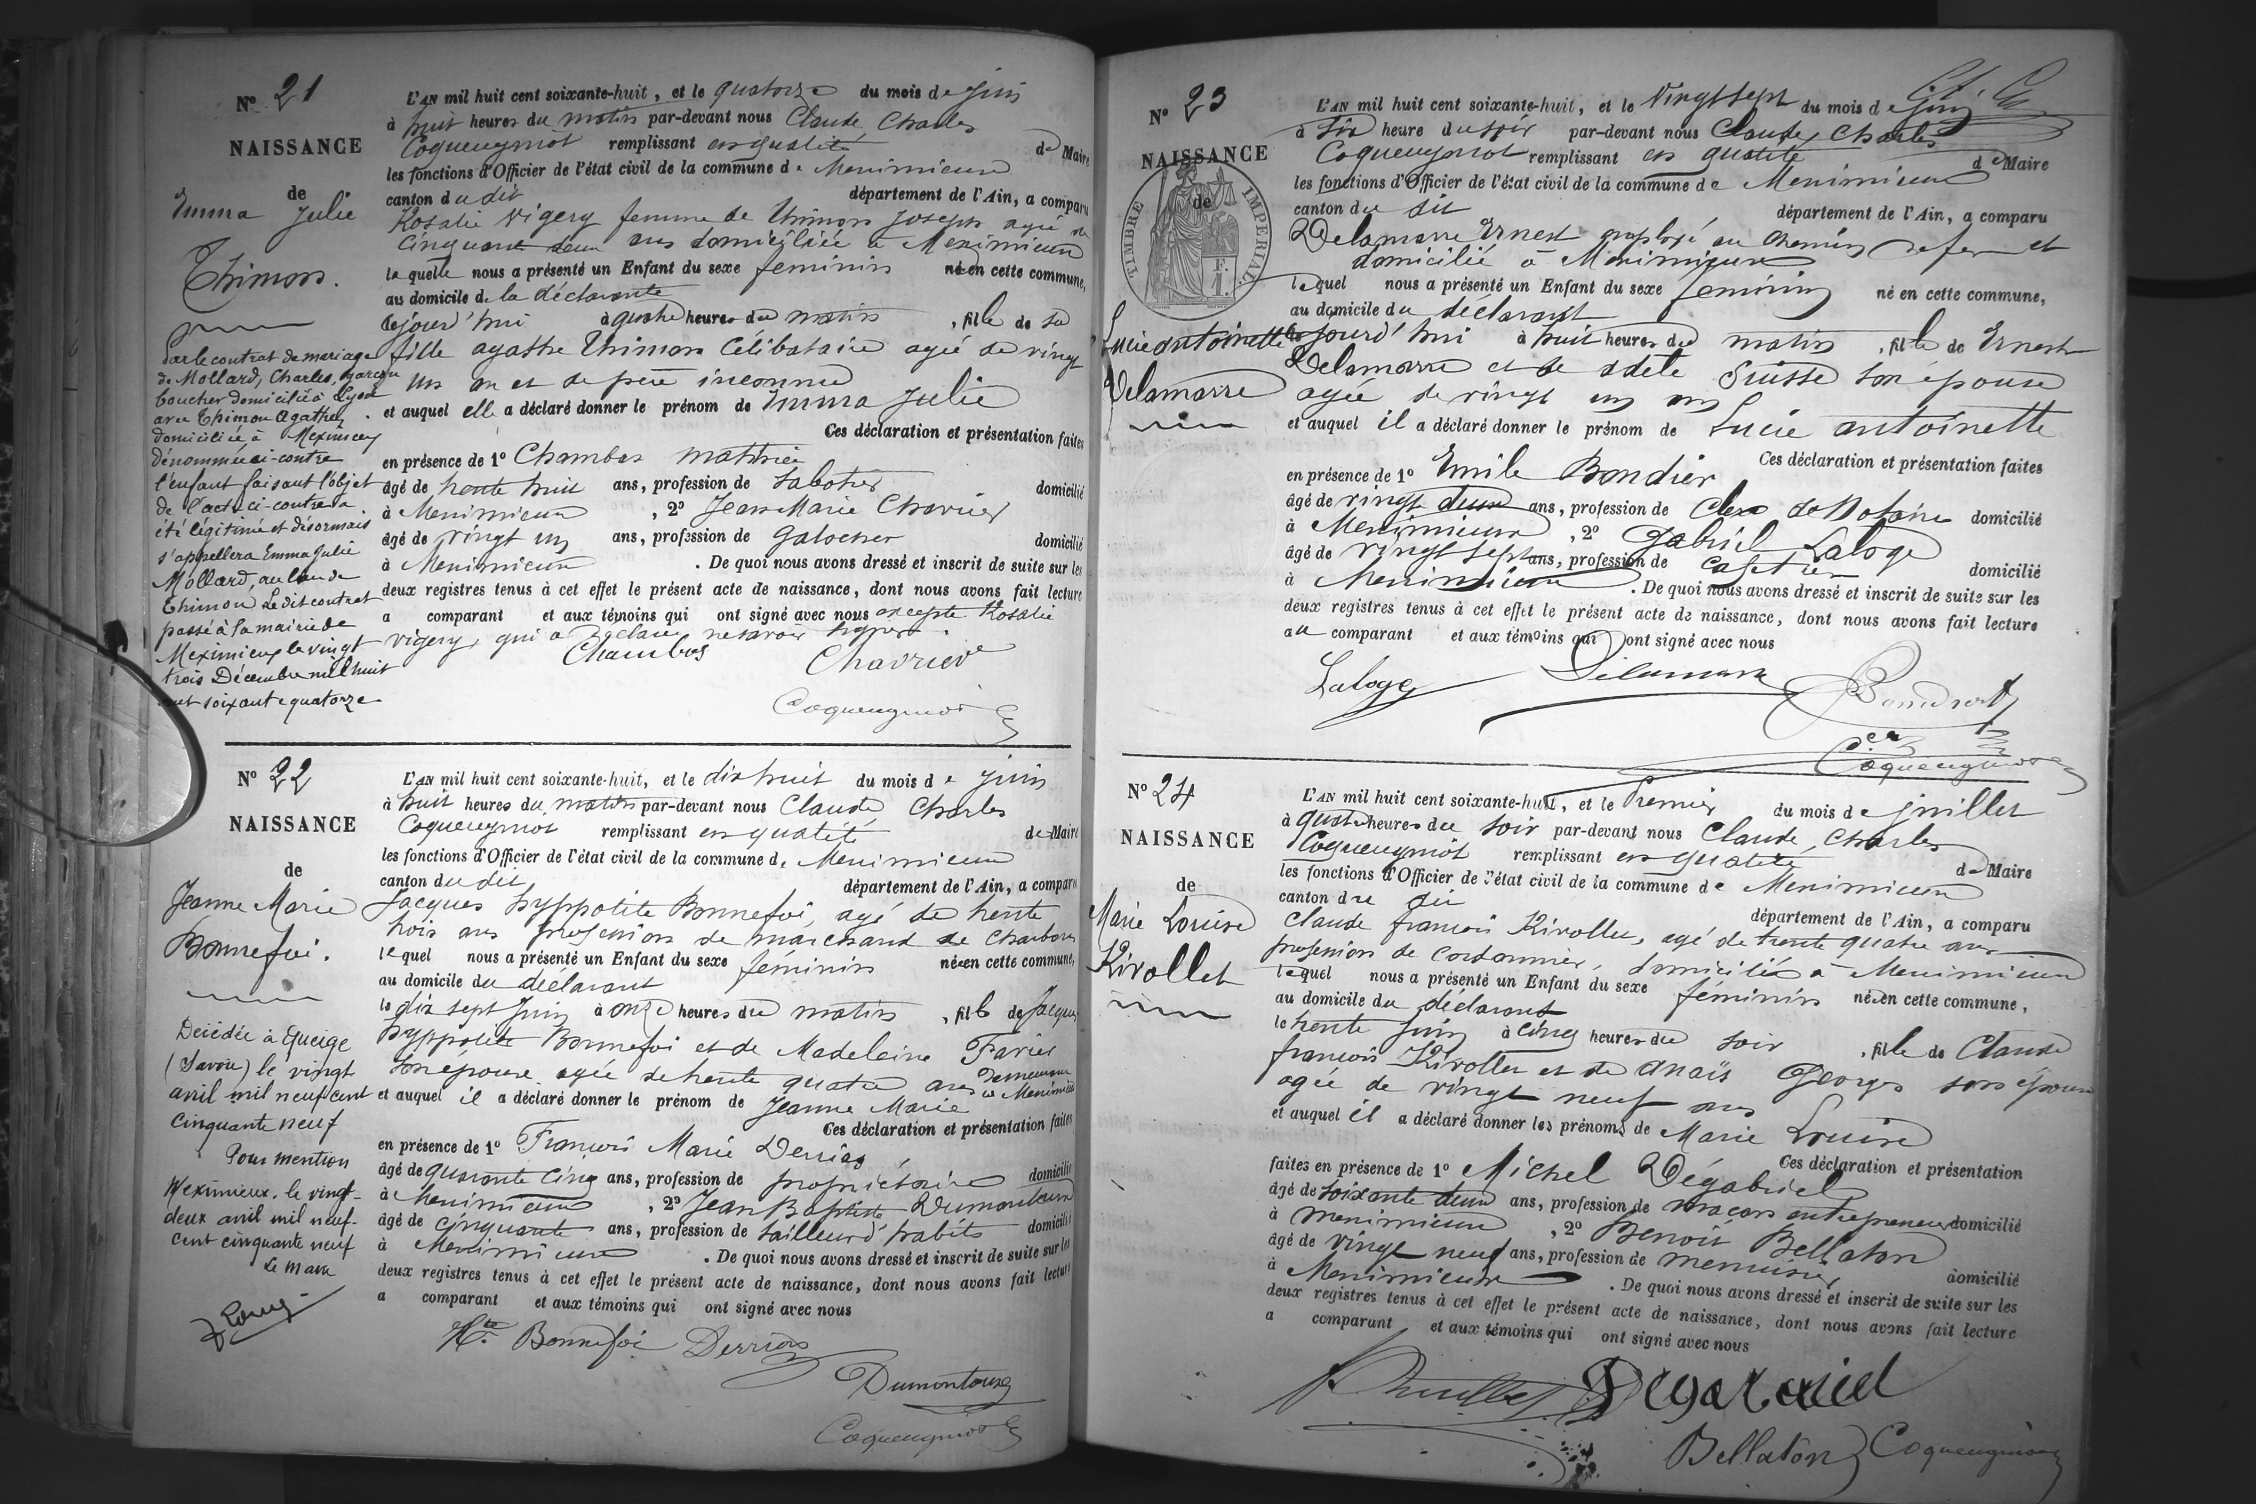 N° 21
NAISSANCE
de
Emma Julie
Thimon.
Par le contrat de mariage
de Mollard, Charles, garçon
boucher domicilié à Lyon
avec Thimon Agathe,
domiciliée à Meximieux
dénommée ci-contre
l'enfant faisant l'objet
de l'acte ci-contre a
été légitimé et désormais
s'appellera Emma Julie
Mollard, au lieu de
Thimon. Le dit contrat
passé à la mairie de
Meximieux le vingt
trois Décembre mil huit
cent soixante quatorze
L'AN mil huit cent soixante-huit, et le quatorze du mois de juin
à huit heures du matin par-devant nous Claude, Charles
Coqueugniot remplissant en qualité de Maire
les fonctions d'Officier de l'état civil de la commune de Meximieux
canton du dit département de l'Ain, a comparu
Rosalie Vigery femme de Thimon Joseph agée de
cinquante deux ans domiciliée à Meximieux
la quelle nous a présenté un Enfant du sexe féminin né en cette commune,
au domicile de la déclarante
cejourd'hui à quatre heures du matin, fille de sa
fille agathe Thimon Célibataire agée de vingt
un an et de père inconnu
et auquel elle a déclaré donner le prénom de Emma Julie
Ces déclaration et présentation faites
en présence de 1° Chambas mathieu
âgé de trente huit ans, profession de Sabotier domicilié
à Meximieux, 2° Jean Marie Chavrier
âgé de vingt un ans, profession de Galocher domicilié
à Meximieux. De quoi nous avons dressé et inscrit de suite sur les
deux registres tenus à cet effet le présent acte de naissance, dont nous avons fait lecture
a comparant et aux témoins qui ont signé avec nous excepté Rosalie
vigery, qui a déclaré ne savoir signer.
Chambas Chavrier
Coqueugniot
N° 22
NAISSANCE
de
Jeanne Marie
Bonnefoi.
Décédée à Queige
(Savoie) le vingt
avril mil neuf cent
cinquante neuf
Pour mention
Meximieux, le vingt-
deux avril mil neuf-
cent cinquante neuf
Le Maire
L'AN mil huit cent soixante-huit, et le dix huit du mois de juin
à huit heures du matin par-devant nous Claude Charles
Coqueugniot remplissant en qualité de Maire
les fonctions d'Officier de l'état civil de la commune de Meximieux
canton du dit département de l'Ain, a comparu
Jacques hyppolite Bonnefoi, agé de trente
trois ans profession de marchand de charbon
lequel nous a présenté un Enfant du sexe féminin né en cette commune,
au domicile du déclarant
le dix sept juin à onze heures du matin, fille de Jacques
hyppolite Bonnefoi et de Madeleine Favier
son épouse agée de trente quatre ans demeurant
à Meximieux
et auquel il a déclaré donner le prénom de Jeanne Marie
Ces déclaration et présentation faites
en présence de 1° François Marie Derrias
âgé de quarante cinq ans, profession de propriétaire domicilié
à Meximieux, 2° Jean Baptiste Dumontoux
âgé de cinquante ans, profession de tailleur d'habits domicilié
à Meximieux. De quoi nous avons dressé et inscrit de suite sur les
deux registres tenus à cet effet le présent acte de naissance, dont nous avons fait lecture
a comparant et aux témoins qui ont signé avec nous
Hte Bonnefoi Derrias
Dumontoux
Coqueugniot
N° 23
NAISSANCE
de
TIMBRE IMPERIAL
F.
1.
Lucie antoinette
Delamarre
L'AN mil huit cent soixante-huit, et le Vingt sept du mois de juin
à six heure du soir par-devant nous Claude, Charles
Coqueugniot remplissant en qualité de Maire
les fonctions d'Officier de l'état civil de la commune de Meximieux
canton du dit département de l'Ain, a comparu
Delamarre Ernest employé au chemin de fer et
domicilié à Meximieux
lequel nous a présenté un Enfant du sexe féminin né en cette commune,
au domicile du déclarant
cejourd'hui à huit heures du matin, fille de Ernest
Delamarre et de Adèle Suisse son épouse
agée de vingt un ans
et auquel il a déclaré donner le prénom de Lucie antoinette
Ces déclaration et présentation faites
en présence de 1° Emile Bondier
âgé de vingt deux ans, profession de Clerc de Notaire domicilié
à Meximieux, 2° Gabriel Laloge
âgé de vingt sept ans, profession de Cafetier domicilié
à Meximieux. De quoi nous avons dressé et inscrit de suite sur les
deux registres tenus à cet effet le présent acte de naissance, dont nous avons fait lecture
au comparant et aux témoins qui ont signé avec nous
Laloge Delamarre
Coqueugniot
N° 24
NAISSANCE
de
Marie Louise
Rivollet
L'AN mil huit cent soixante-huit, et le Premier du mois de juillet
à quatre heures du soir par-devant nous Claude, Charles
Coqueugniot remplissant en qualité de Maire
les fonctions d'Officier de l'état civil de la commune de Meximieux
canton du dit département de l'Ain, a comparu
Claude françois Rivollet, agé de trente quatre ans
profession de cordonnier, domicilié à Meximieux
lequel nous a présenté un Enfant du sexe féminin né en cette commune,
au domicile du déclarant
le trente juin à cinq heures du soir, fille de Claude
françois Rivollet et de Anaïs Georges son épouse
agée de vingt neuf ans
et auquel il a déclaré donner les prénoms de Marie Louise
Ces déclaration et présentation
faites en présence de 1° Michel Dégabriel
âgé de soixante deux ans, profession de maçon entrepreneur domicilié
à Meximieux, 2° Benoit Bellaton
âgé de vingt neuf ans, profession de menuisier domicilié
à Meximieux. De quoi nous avons dressé et inscrit de suite sur les
deux registres tenus à cet effet le présent acte de naissance, dont nous avons fait lecture
a comparant et aux témoins qui ont signé avec nous
Bellaton Coqueugniot